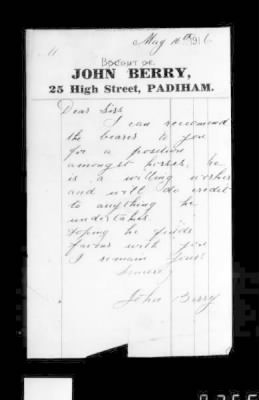 May 10th 1916
11
BOUGHT OF
JOHN BERRY,
25 High Street, PADIHAM.
Dear Sirs
I can reccomend
the bearer to you
for a position
amongst horses. he
is a willing worker
and will do credit
to anything he
undertakes.
Hoping he finds
favour with you
I remain yours
Sincerely
John Berry